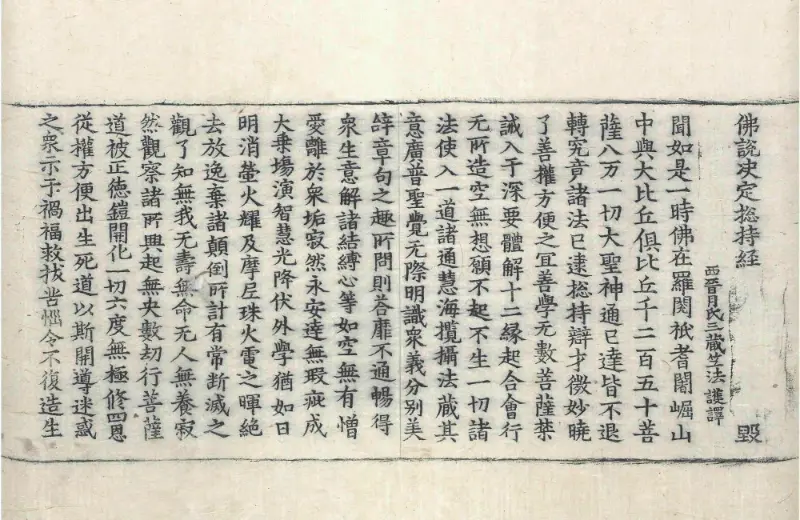 佛說決定揔持經
毀
西晉月氏三藏竺法護譯
聞如是一時佛在羅閱祇耆闍崛山
中與大比丘俱比丘千二百五十菩
薩八万一切大聖神通已達皆不退
轉究竟諸法已逮揔持辯才微妙曉
了善權方便之宜善學无數菩薩禁
誡入于深要體解十二緣起合會行
无所造空無想願不起不生一切諸
法使入一道諸通慧海攬攝法藏其
意廣普聖覺无際明識衆義分別美
辝章句之趣所問則荅靡不通暢得
衆生意解諸結縛心等如空無有憎
愛離於衆垢寂然永安達無瑕疵成
大乗場演智慧光降伏外學猶如日
明消螢火耀及摩尼珠火電之暉絶
去放逸棄諸顛倒所計有常斷滅之
觀了知無我无壽無命无人無養寂
然觀察諸所興起無央數劫行菩薩
道被正德鎧開化一切六度無極修四恩
從權方便出生死道以斯開導迷惑
之衆示于禍福救拔苦惱令不復造生